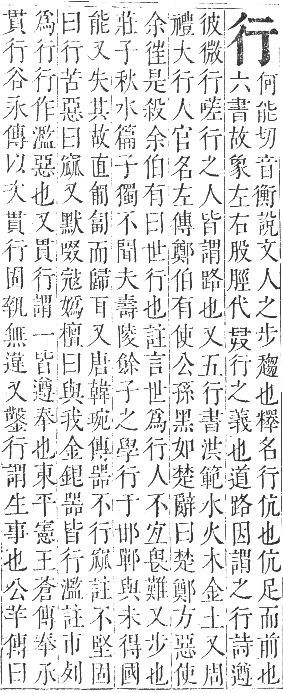 行
何能切音衡說文人之步趨也釋名行伉也伉足而前也
六書故象左右股脛代發行之義也道路因謂之行詩遵
彼微行嗟行之人皆謂路也又五行書洪範水火木金土又周
禮大行人官名左傳鄭伯有使公孫黑如楚辭曰楚鄭方惡使
余徃是殺余伯有曰世行也註言世爲行人不宐畏難又步也
莊子秋水篇子獨不聞夫壽陵餘子之學行于邯鄲與未得國
能又失其故直匍匐而歸耳又唐韓琬傳器不行窳註不堅固
曰行苦惡曰窳又默啜寇嬀檀曰與我金銀器皆行濫註市列
爲行行作濫惡也又貫行謂一皆遵奉也東平憲王蒼傳奉承
貫行谷永傳以次貫行固執無違又鑿行謂生事也公羊傳曰